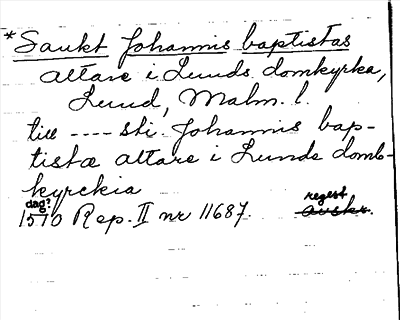 *Sankt Johannis baptistas
altare i Lunds domkyrka,
Lund, Malm. l.
till ---- sti. Johannis bap-
tistæ altare i Lunde domb-
kyrckia
dag?
1510 Rep. II nr 11687.
regest
avskr.